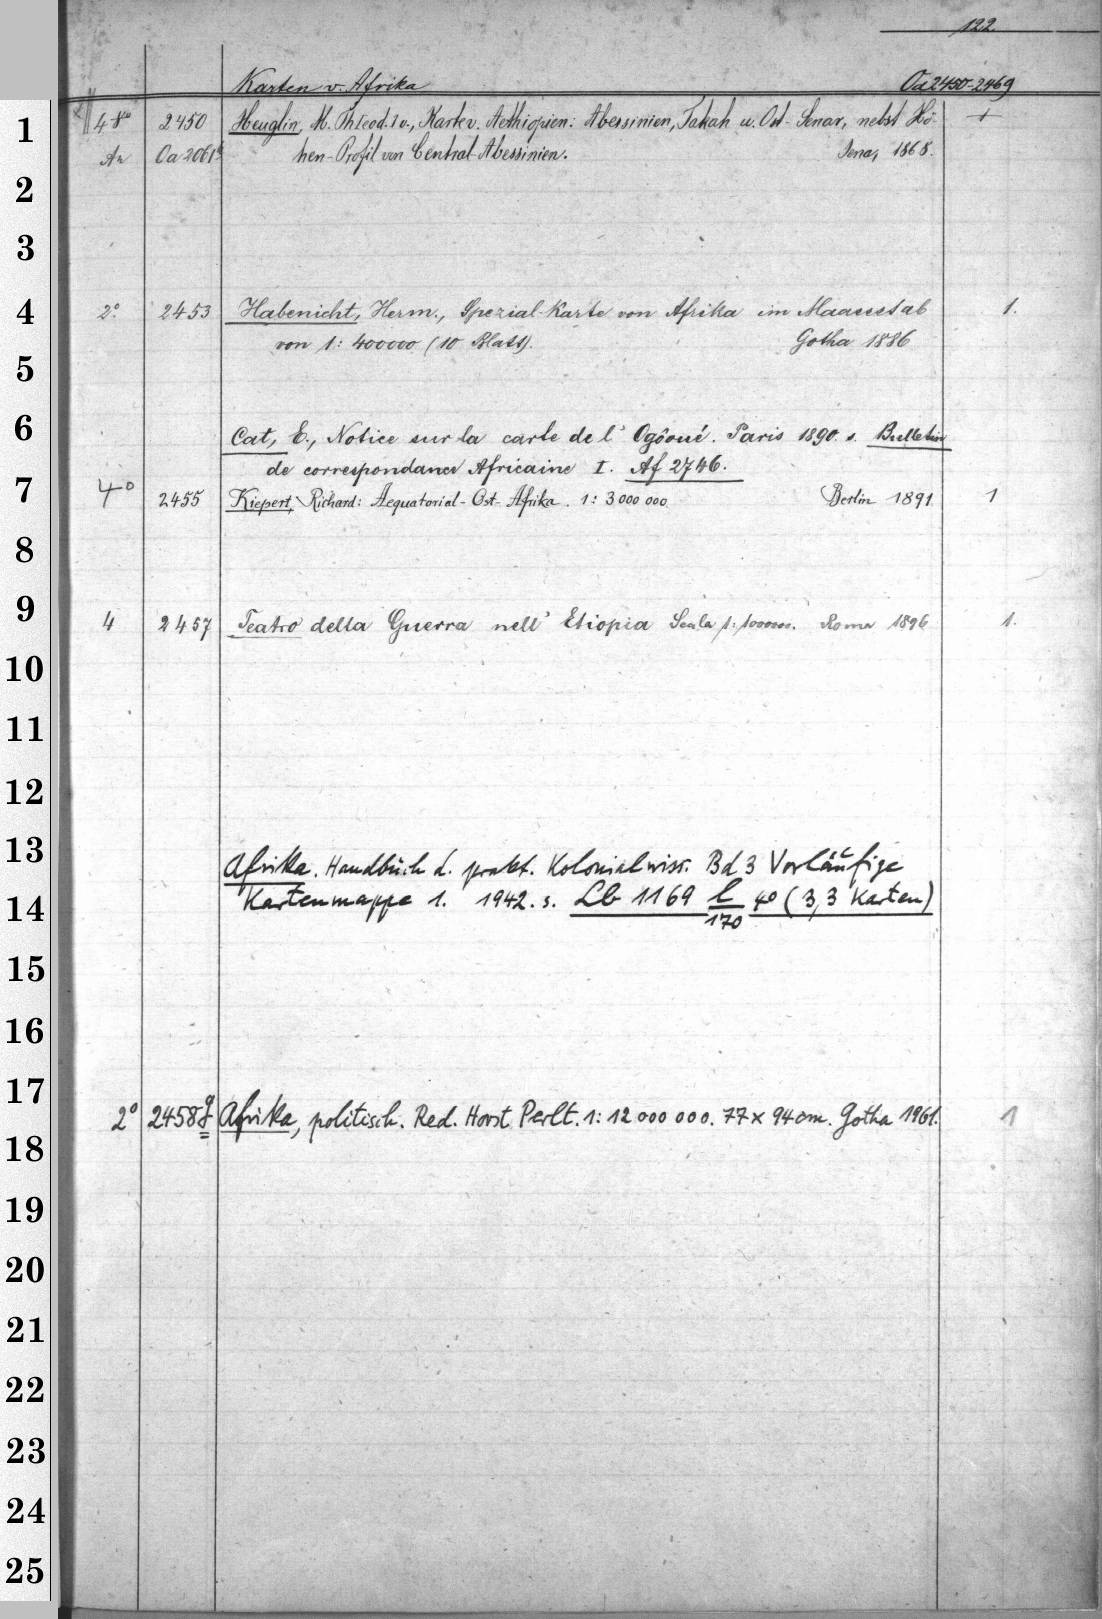 122
Karten v. Afrika Oa 2450-2469
1
4 8vo 2450 Heuglin, M. Theod. v., Karte v. Aethiopien: Abessinien, Takah u. Ost-Senar, nebst Hö- +
Oa 2061 hen-Profil von Central-Abessinien. Jena, 1868.
2
3
4
2° 2453 Habenicht, Herm., Spezial-Karte von Afrika im Maassstab 1.
von 1: 400000 (10 Blatt). Gotha 1886
5
6
Cat, E., Notice sur la carte de l' Ogôoué. Paris 1890. s. Bulletin
de correspondance Africaine I. Af 2746.
7
4° 2455 Kiepert, Richard: Aequatorial-Ost-Afrika. 1: 3 000 000 Berlin 1891 1
8
9
4 2457 Teatro della Guerra nell' Etiopia Scala 1: 1000000. Roma 1896 1.
10
11
12
13
Afrika. Handbuch d. prakt. Kolonialwiss. Bd 3 Vorläufige
14
Kartenmappe 1. 1942. s. Lb 1169 l/170 4° (3,3 Karten)
15
16
17
2° 2458g Afrika, politisch. Red. Horst Perlt. 1: 12 000 000. 77 x 94 cm. Gotha 1961. 1
18
19
20
21
22
23
24
25